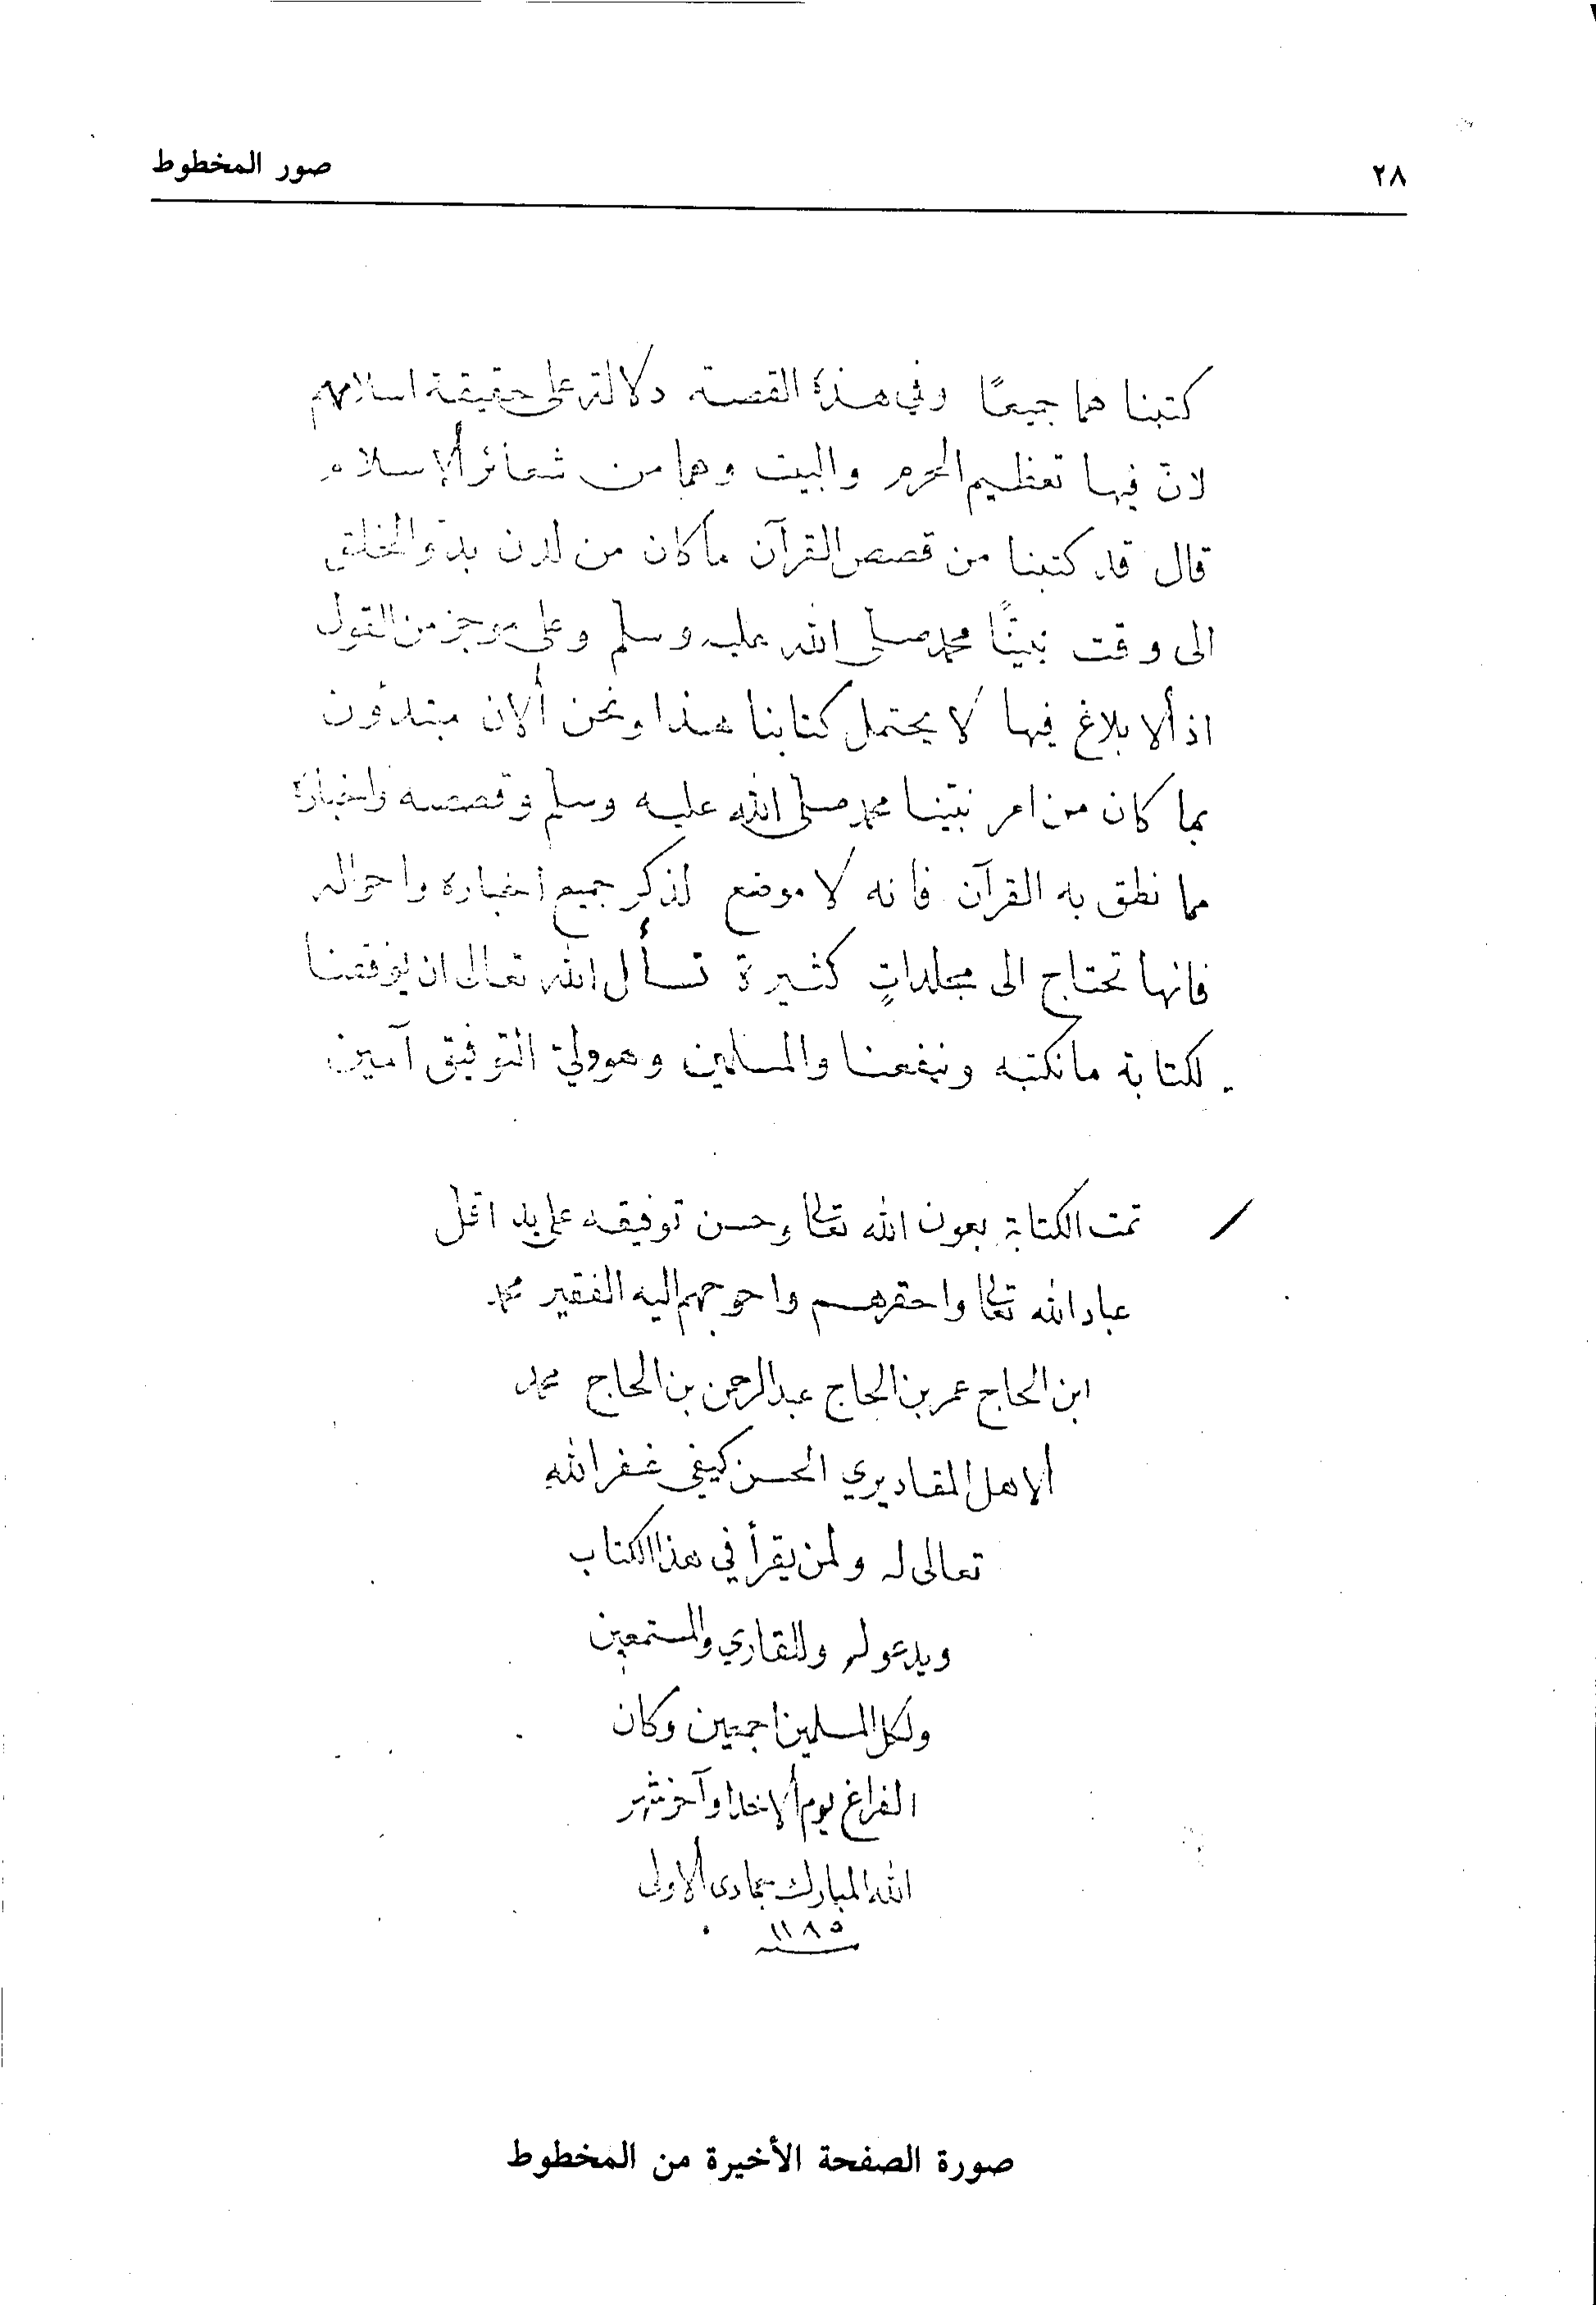 ٢٨
صور المخطوط
كتبنا هما جميعًا وفي هذه القصة دلالة على حقيقة اسلامهم
لان فيها تعظيم الحرم والبيت وهما من شعائر ألإسلام
قال قد كتبنا من قصص القرآن ما كان من لدن بدؤ الخلق
الى وقت نبيّنا محمد صلى الله عليه وسلم وعلى موجز من القول
اذ ألابلاغ فيها لا يحتمل كتابنا هذا ونحن ألان مبتدؤن
بما كان من امر نبيّنا محمد صلى الله عليه وسلم وقصصه واخباره
مما نطق به القرآن فانه لا موضع لذكر جميع اخباره واحواله
فانها تحتاج الى مجلداتٍ كثيرة نسأل الله تعالى ان يوفقنا
لكتابة ما نكتبه وينفعنا والمسلمين وهو ولي التوفيق آمين
تمت الكتابة بعون الله تعالى وحسن توفيقه على يد اقل
عباد الله تعالى واحقرهم واحوجهم اليه الفقير محمد
ابن الحاج عمر بن الحاج عبد الرحمن بن الحاج محمد
ألاهل المقاديري الحسن كيفي غفر الله
تعالى له ولمن يقرأ في هذا الكتاب
ويدعو له وللقاري والمستمعين
ولكل المسلمين اجمعين وكان
الفراغ يوم ألاحد اوآخر شهر
الله المبارك جمادى ألاولى
١١٨٥
صورة الصفحة الأخيرة من المخطوط